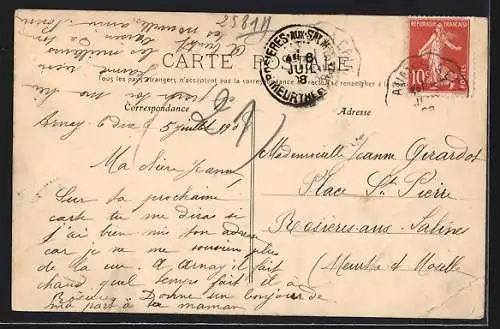 25811
CARTE POSTALE
Tous les pays étrangers n'acceptent pas la correspondance
se renseigner à la
Correspondance
Adresse
ROSIÈRES-AUX-SALINES
MEURTHE
10c
POSTES
21
Arnay 6 Duc 5 Juillet 190
Ma Chère Jeanne
Sur ta prochaine
carte tu me diras si
j'ai bien mis ton adresse
car je ne me souviens plus
de la rue. A Arnay il fait
chaud quel temps fait il à
Rosières Donne un bonjour de
ma part à ta maman
Mademoiselle Jeanne Girardot
Place St Pierre
Rosières-aux-Salines
(Meurthe et Moselle